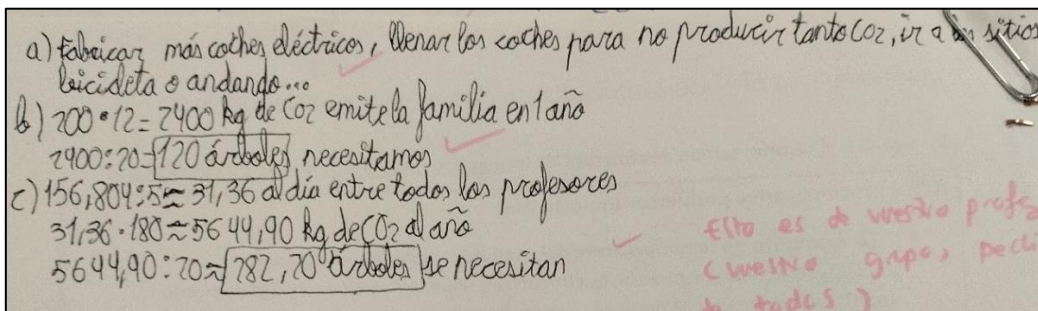 a) fabricar más coches eléctricos, llenar los coches para no producir tanto CO2, ir a un sitio
bicicleta o andando...
b) 200·12=2400 kg de CO2 emite la familia en 1 año
2400:20=120 árboles necesitamos
c) 156,804:5≈31,36 al día entre todos los profesores
31,36·180≈5644,90 kg de CO2 al año
5644,90:20≈282,20 árboles se necesitan
Esto es de vuestro profe
(vuestro grupo, pedi
todos)